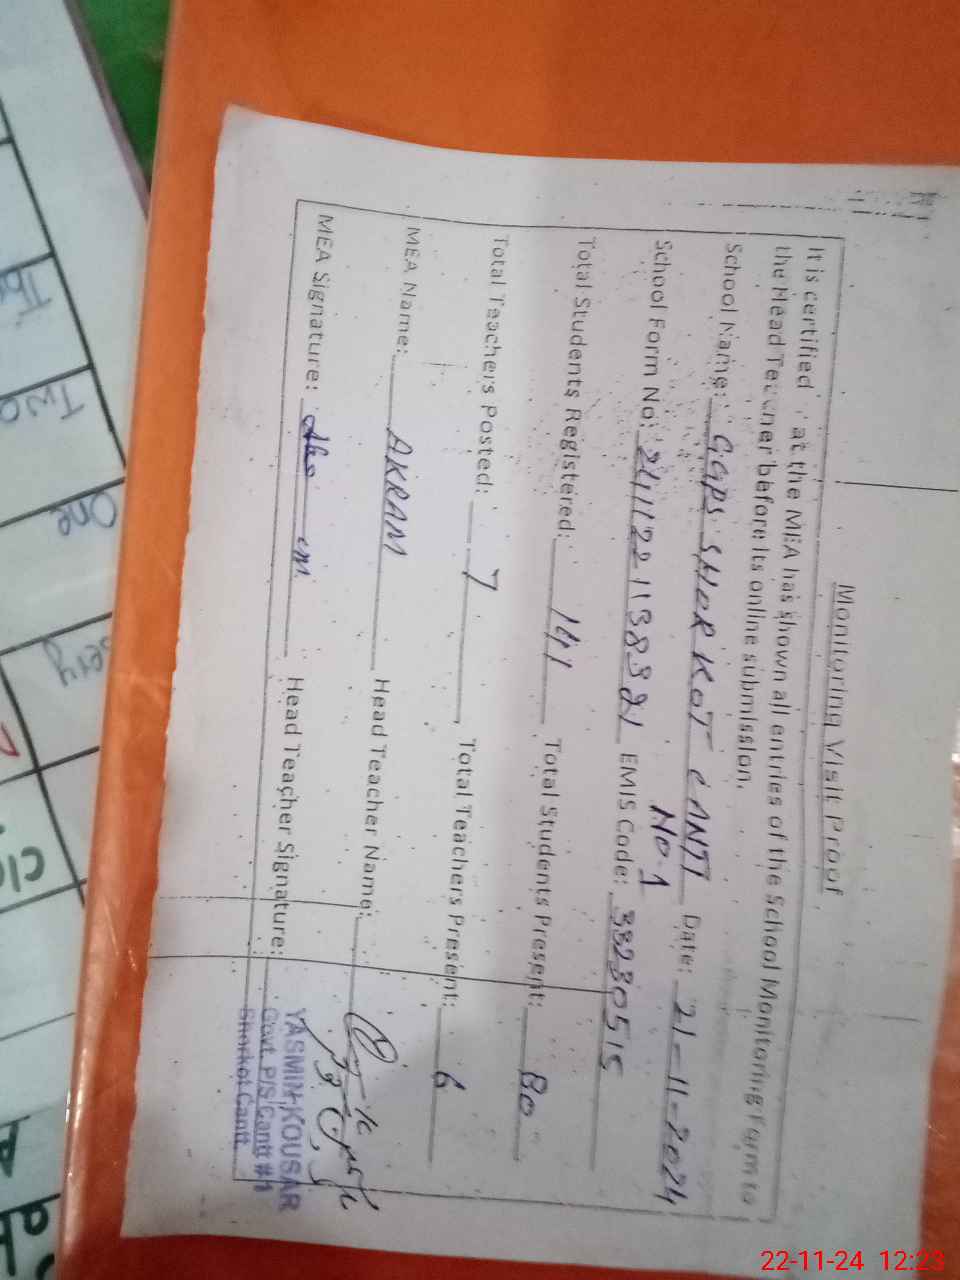 Monitoring Visit Proof
It is certified at the MEA has shown all entries of the School Monitoring Form to
the Head Teacher before its online submission.
School Name: GGPS SHORKOT CANTT NO.1 Date: 21-11-2024
School Form No: EMIS Code: 33230515
Total Students Registered: 141 Total Students Present: 80
Total Teachers Posted: 7 Total Teachers Present: 6
MEA Name: AKRAM Head Teacher Name:
MEA Signature: Head Teacher Signature:
YASMIN KOUSAR
Govt. P/S Cantt #1
Shorkot Cantt
Two
One
22-11-24 12:23